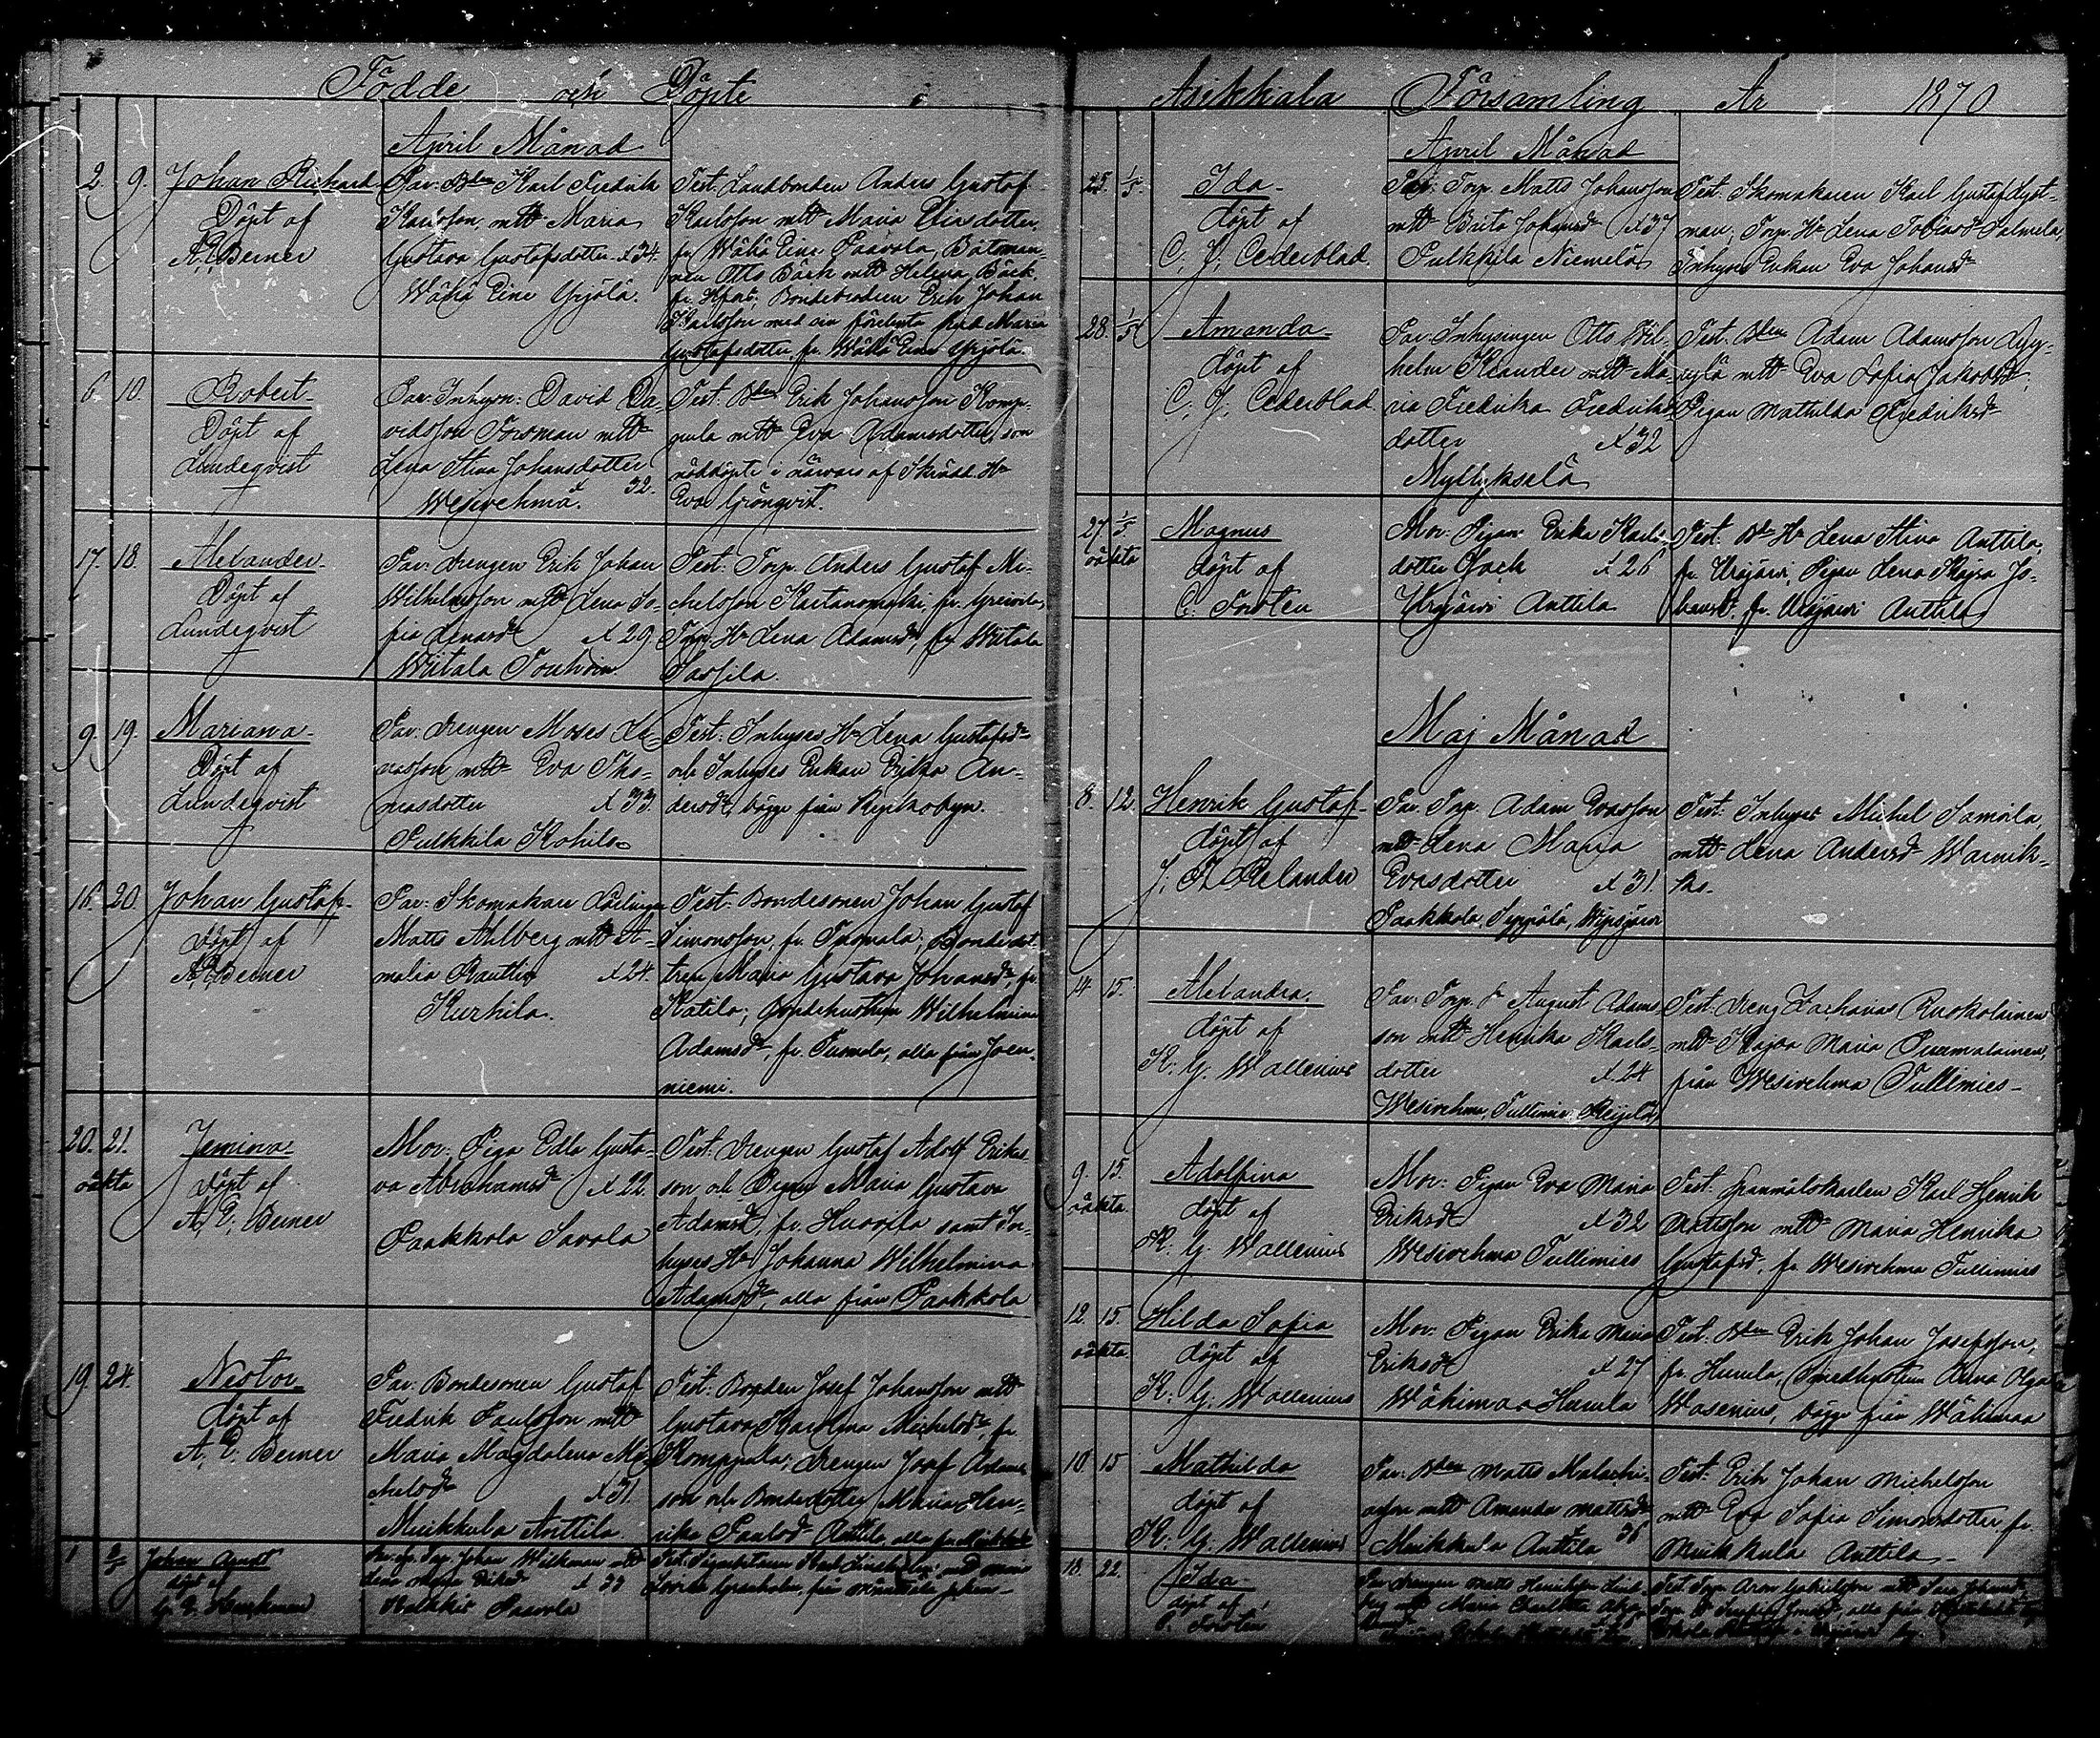 Födde och Döpte
April Månad
2. 9. Johan Richard
Döpt af
A. E. Berner
Far: Bden Karl Fredrik
Karlsson, mtt Maria
Gustava Gustafsdotter x 34.
Wähä Eine Yrjölä.
Test: Landbonden Anders Gustaf
Karlsson mtt Maria Eliasdotter,
fr. Wähä Eine Paavola, Båtsman-
nen Otto Bäck mtt Helena Bäck
fr. Hfors; Bondebrodren Erik Johan
Karlsson med sin förelenta Maria
Gustafsdotter, fr. Wähä Eine Yrjölä.
6. 10. Robert
Döpt af
Lundeqvist
Far: Inhysn: David Da-
vidsson Forsman mtt
Lena Stina Johansdotter
Wesivehma. x 32.
Test: Bden Erik Johansson Komp-
pula mtt Eva Adamsdotter, som
nöddöpte i närvaro af Skrädd. Hu
Eva Grönqvist.
17. 18. Alexander
Döpt af
Lundeqvist
Far: Drengen Erik Johan
Wilhelmsson mtt Lena So-
fia Lenasdr x 29.
Wiitala Touhoin
Test: Torp. Anders Gustaf Mi-
chelsson Kartanomyki, fr.
Torp. Hu Lena Adamsdr, fr. Wiitala
Sassila.
9. 19. Mariana
Döpt af
Lundeqvist
Far: Drengen Moses
vasson mtt Eva Tho-
masdotter x 33.
Pulkkila Kohila
Test: Inhyses Hu Lena Gustafsdr
och Inhyses Enkan Erika An-
dersdr, bägge från
16. 20. Johan Gustaf
Döpt af
A. E. Berner
Far: Skomakare Lärlingen
Matts Ahlberg mtt A-
malia Rautlin x 24.
Kurhila.
Test: Bondesonen Johan Gustaf
Simonsson, fr. Tuomala; Bondedot-
tren Maria Gustava Johansdr, fr.
Katila; Bondehustrun Wilhelmina
Adamsdr, fr. Tuomala, alla från Joen-
niemi.
20. 21. Jemina
oäkta
Döpt af
A. E. Berner
Mor: Piga Edla Gusta-
va Abrahamsdr x 22
Paakkola Savola
Test: Drengen Gustaf Adolf Eriks-
son och Pigan Maria Gustava
Adamsdr, fr. Huovila samt In-
hyses Hu Johanna Wilhelmina
Adamsdr, alla från Paakkola
19. 24. Nestor
Döpt af
A. E. Berner
Far: Bondesonen Gustaf
Fredrik Paulsson mtt
Maria Magdalena Mi-
chelsdr x 31.
Muikkula Anttila
Test: Bonden Josef Johansson mtt
Gustava Karolina Michelsdr, fr.
Komppula; Drengen Josef Adams-
son och Bondedotter Maria Hen-
rika Paulsdr Anttila, alla fr. Muikkula
1 Johan
döpt af
Johan Wilkman mtt
x 33
Paavola
Asikkala Församling År 1870
April Månad
25. 1/5. Ida
döpt af
C. J. Cederblad.
Far: Torp. Matts Johansson
mtt Brita Johansdr x 37
Pulkkila Niemelä
Test: Skomakaren Karl Gustaf Lyst-
man, Torp. Hu Lena Tobiasdr Salmela,
Inhyses Enkan Eva Johansdr
28. 1/5 Amanda
döpt af
C. J. Cederblad
Far: Inhysingen Otto Wil-
helm Kiander mtt Ma-
ria Fredrika Fredriks-
dotter x 32
Myllykselä
Test: Bden Adam Adamsson
mtt Eva Sofia Jakobsdr,
Pigan Mathilda Fredriksdr
27. 1/5 Magnus
oäkta
döpt af
C. Forsten
Mor: Pigan Erika Karls-
dotter x 26
Urajärvi Anttila
Test: Bde Hu Lena Stina Anttila,
fr. Urajärvi, Pigan Lena Kajsa Jo-
hansdr. fr. Urajärvi Anttila
Maj Månad
8. 12. Henrik Gustaf
döpt af
J. A. Relander
Far: Torp. Adam Evasson
mtt Lena Maria
Evasdotter x 31.
Paakkola, Seppälä,
Test: Inhyses Michel Samola,
mtt Lena Andersdr Warvik-
ko.
14. 15. Alexandra.
döpt af
K. G. Wallenius
Far: Torp. August Adams-
son mtt Henrika Karls-
dotter x 24
Wesivehma, Tullimies
Test: Dreng Zacharias Ruskolainen
mtt Kajsa Maria Purmalainen,
från Wesivehma Tullimies
9. 15. Adolfina
oäkta
döpt af
K. G. Wallenius
Mor: Pigan Eva Maria
Eriksdr x 32
Wesivehma Tullimies
Test: Spanmålskarlen Karl Henrik
Mattsson mtt Maria Henrika
Gustafsdr, fr. Wesivehma Tullimies
12. 15. Hilda Sofia
oäkta
döpt af
K. G. Wallenius
Mor: Pigan Erika Maria
Eriksdr x 27
Wähimaa Humla
Test: Bden Erik Johan Josefsson,
fr. Humla, Smedhustrun Anna Olga
Wasenius, bägge från Wähimaa
10. 15 Mathilda
döpt af
K. G. Wallenius
Far: Bden Matts Malachi-
asson mtt Amanda Mattsdr
Muikkula Anttila 36
Test: Erik Johan Michelsson
mtt Eva Sofia Simonsdotter, fr.
Muikkula Anttila
18. 22. Ida
döpt af
C. Forsten
Far: Drengen Matts Henriksson
mtt Maria Charlotta
Test: Torp. Aron Gabrielsson mtt